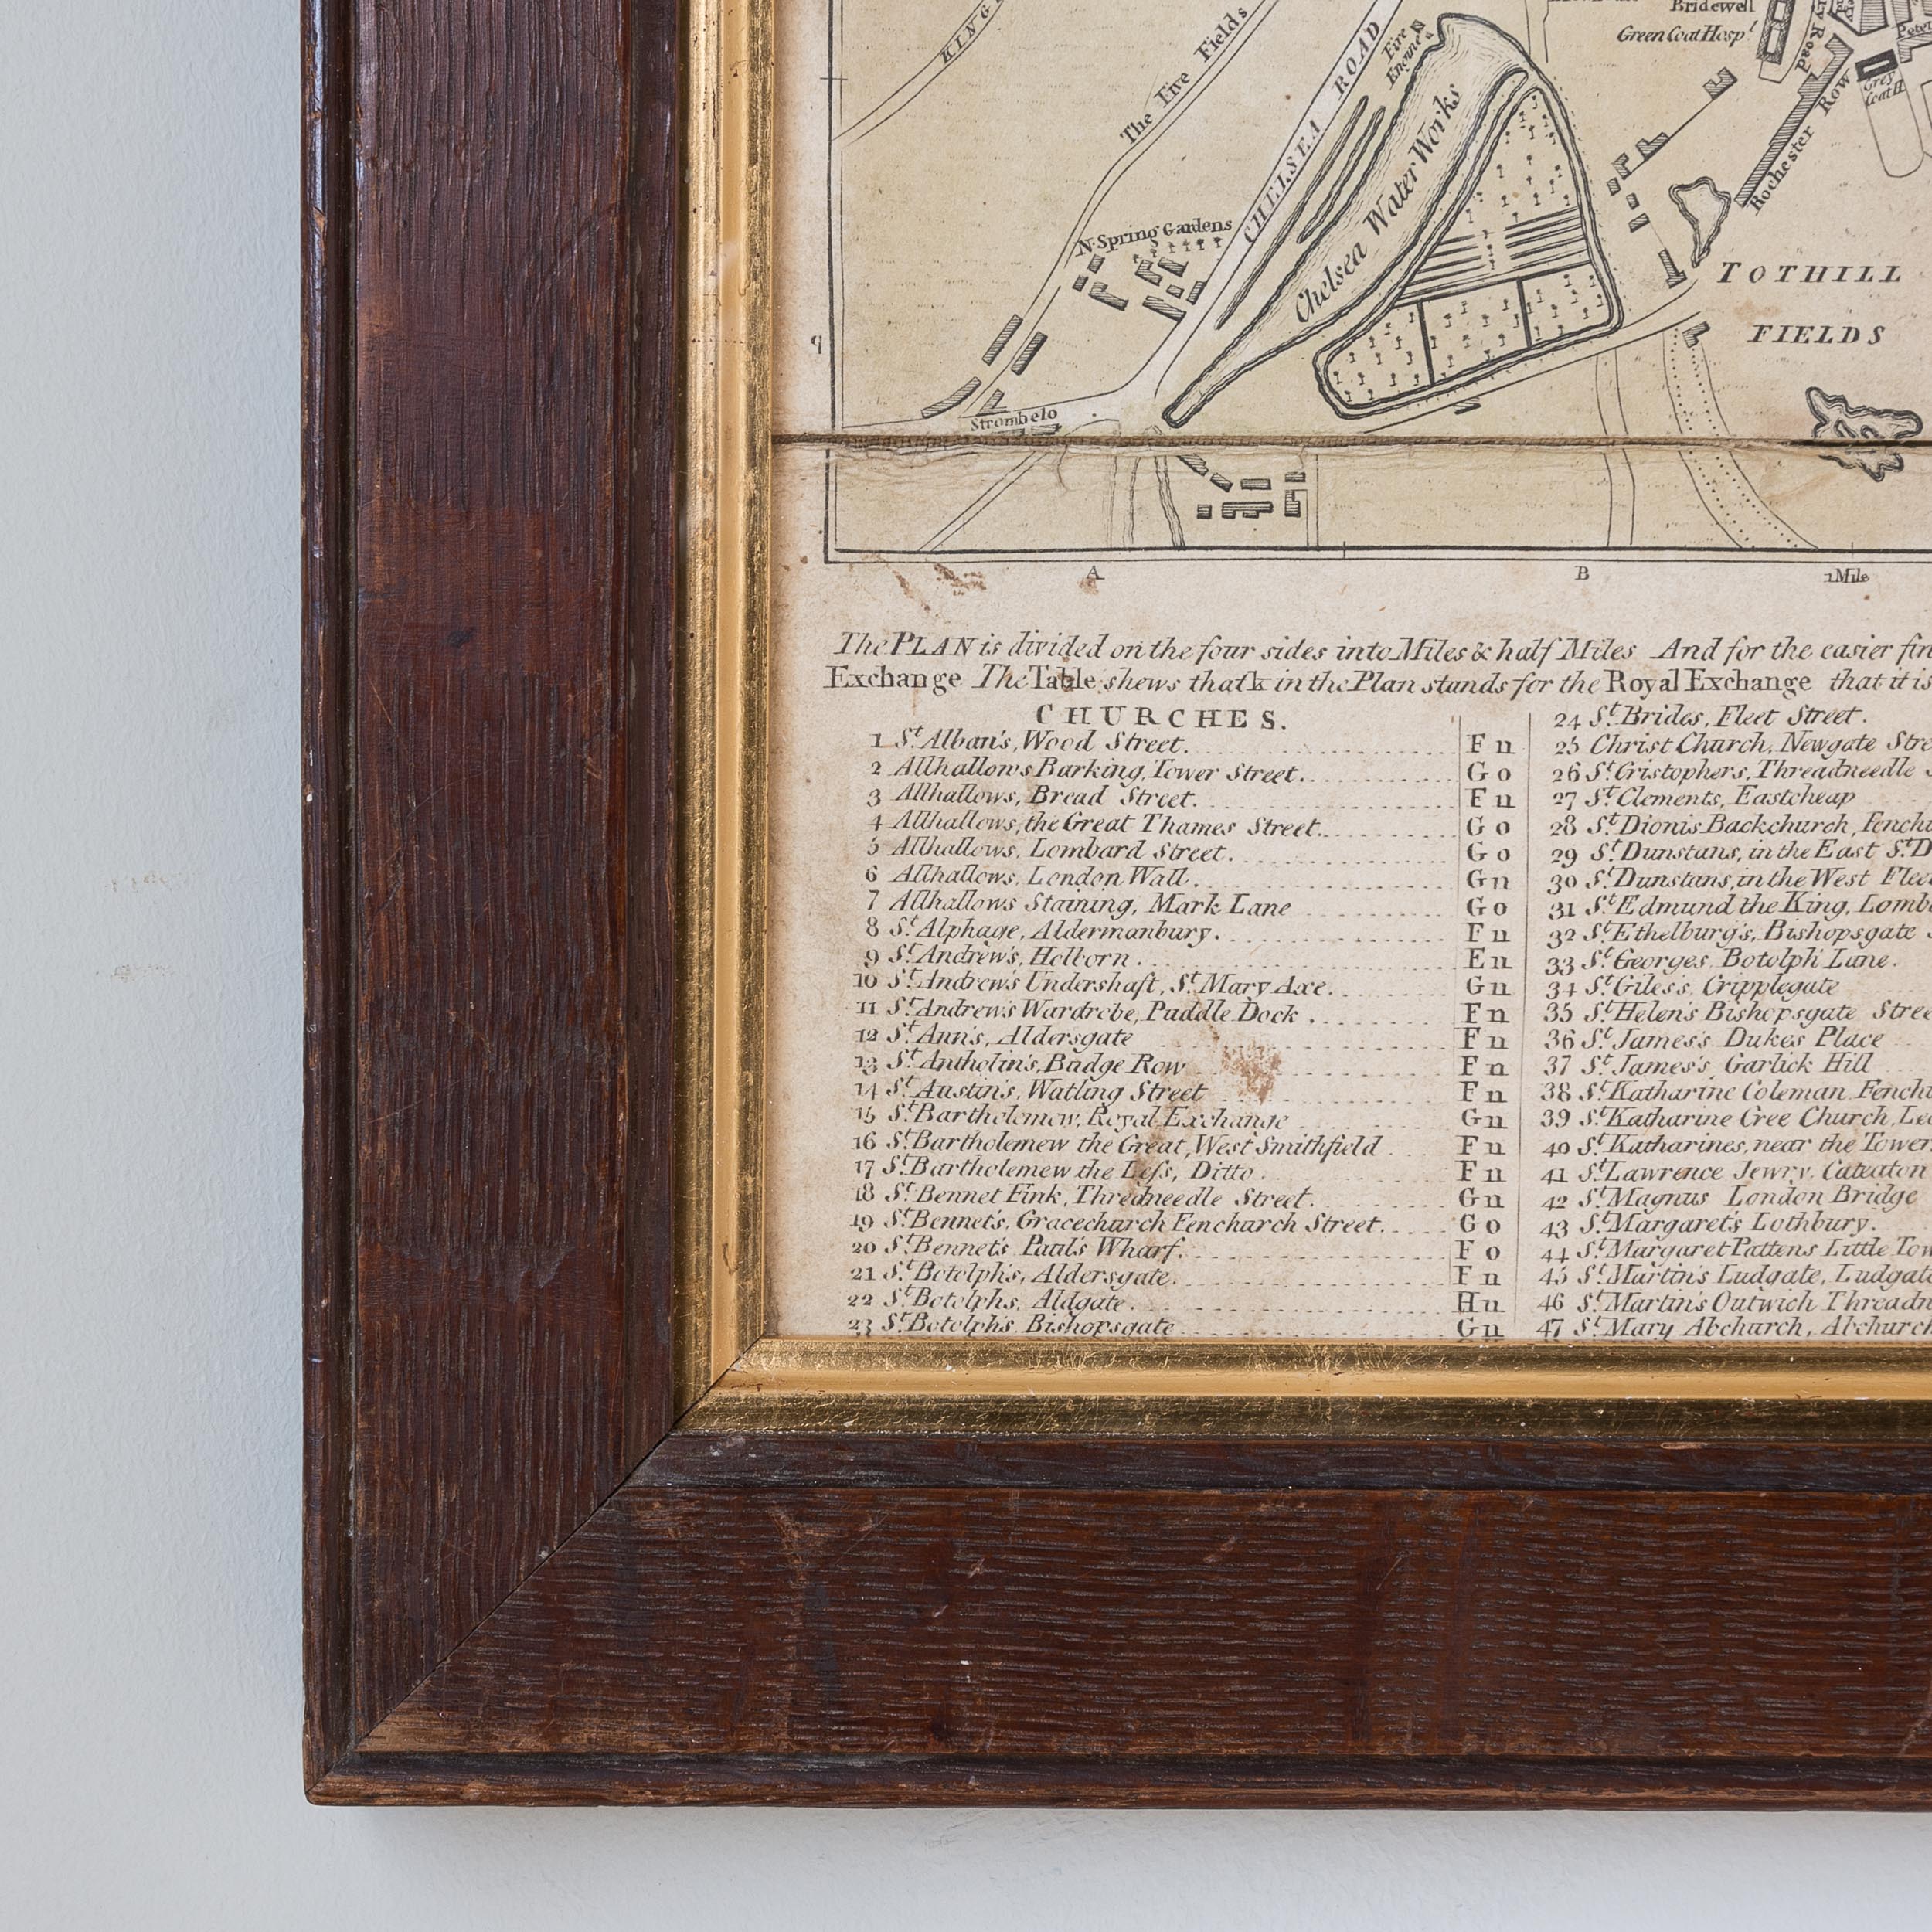 KING
The Five Fields
CHELSEA ROAD
Fire Engine
Chelsea Water Works
Bridewell
Green Coat Hosp.l
Rochester Row
Grey Coat H
N. Spring Gardens
TOTHILL
FIELDS
q
Strombelo
A
B
1 Mile
The PLAN is divided on the four sides into Miles & half Miles And for the easier fin
Exchange The Table shews that k in the Plan stands for the Royal Exchange that it is
CHURCHES.
1 St. Alban's, Wood Street. F n
2 Allhallows Barking, Tower Street. G o
3 Allhallows, Bread Street. F n
4 Allhallows, the Great Thames Street. G o
5 Allhallows, Lombard Street. G o
6 Allhallows, London Wall. G n
7 Allhallows Staining, Mark Lane G o
8 St. Alphage, Aldermanbury. F n
9 St. Andrew's, Holborn. E n
10 St. Andrew's Undershaft, St. Mary Axe. G n
11 St. Andrews Wardrobe, Puddle Dock. F n
12 St. Ann's, Aldersgate F n
13 St. Antholin's, Budge Row F n
14 St. Austin's, Watling Street F n
15 St. Bartholomew, Royal Exchange G n
16 St. Bartholemew the Great, West Smithfield F n
17 St. Bartholemew the Leſs, Ditto. F n
18 St. Bennet Fink, Thredneedle Street. G n
19 St. Bennet's, Gracechurch Fencharch Street. G o
20 St. Bennet's Paul's Wharf. F o
21 St. Botolph's, Aldersgate. F n
22 St. Botolphs, Aldgate. H n
23 St. Botolph's Bishopsgate G n
24 St. Brides, Fleet Street.
25 Christ Church, Newgate Stre
26 St. Cristophers, Threadneedle
27 St. Clements, Eastcheap
28 St. Dionis Backchurch, Fenchu
29 St. Dunstans, in the East St. D
30 St. Dunstans, in the West Flee
31 St. Edmund the King, Lomb
32 St. Ethelburg's, Bishopsgate
33 St. Georges, Botolph Lane.
34 St. Giless, Cripplegate
35 St. Helen's Bishopsgate Stree
36 St. James's Dukes Place
37 St. James's, Garlick Hill
38 St. Katharine Coleman Fenchu
39 St. Katharine Cree Church, Lea
40 St. Katharines, near the Tower
41 St. Lawrence Jewry, Cateaton
42 St. Magnus London Bridge
43 St. Margaret's Lothbury.
44 St. Margaret Pattens Little Tow
45 St. Martin's Ludgate, Ludgate
46 St. Martin's Outwich Threadn
47 St. Mary Abchurch, Abchurch